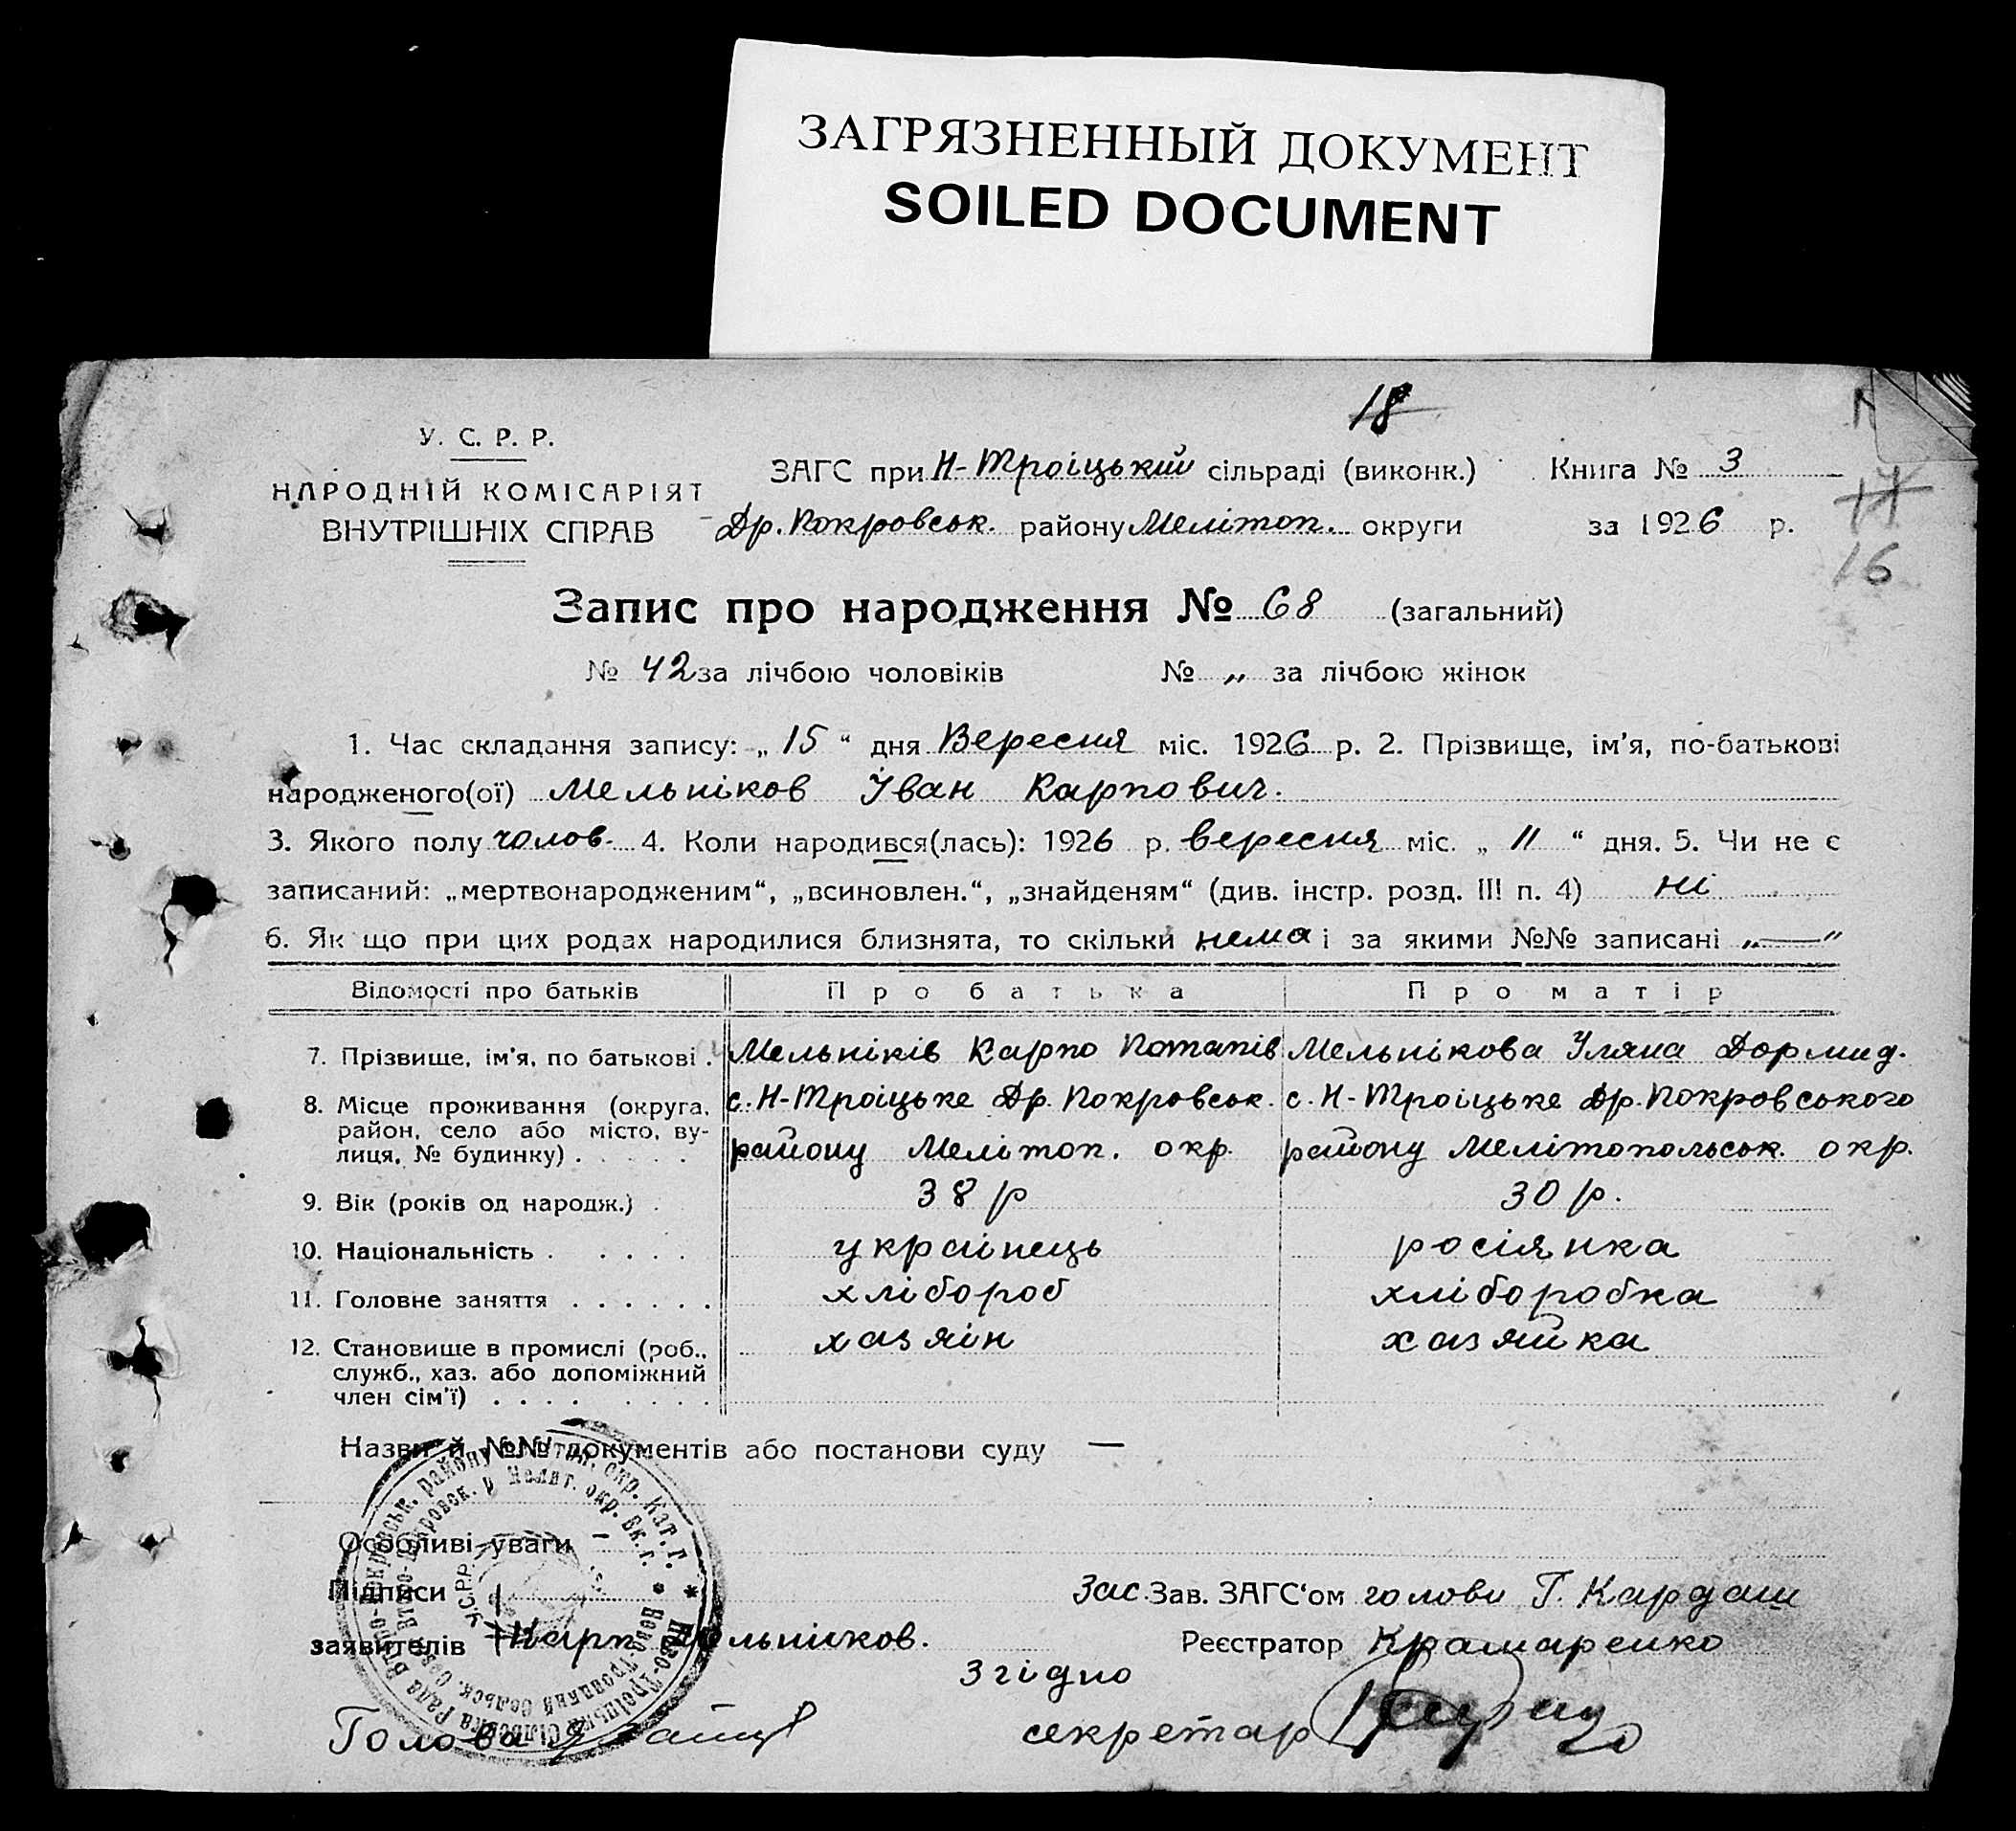 ЗАГРЯЗНЕННЫЙ ДОКУМЕНТ
SOILED DOCUMENT
18
У. С. Р. Р.
НАРОДНІЙ КОМІСАРІЯТ
ВНУТРІШНІХ СПРАВ
ЗАГС при Н-Троіцькій сільраді (виконк.) Книга № 3
Др. Покровськ. району Мелітоп. округи за 1926 р.
17
16
Запис про народження № 68 (загальний)
№ 42 за лічбою чоловіків № „ за лічбою жінок
1. Час складання запису: „ 15 “ дня Вересня міс. 1926 р. 2. Прізвище, ім'я, по-батькові
народженого(ої) Мельніков Іван Карпович.
3. Якого полу чолов. 4. Коли народився(лась): 1926 р. вересня міс. „ 11 “ дня. 5. Чи не є
записаний: „мертвонародженим“, „всиновлен.“, „знайденям“ (див. інстр. розд. III п. 4) ні
6. Як що при цих родах народилися близнята, то скільки нема і за якими №№ записані „—“
Відомості про батьків Про батька Про матір
7. Прізвище, ім'я, по батькові . Мельніків Карпо Потапів Мельнікова Уляна Дормид.
8. Місце проживання (округа, район, село або місто, ву-лиця, № будинку) . . . . . с. Н-Троіцьке Др. Покровськ. району Мелітоп. окр. с. Н-Троіцьке Др. Покровського району Мелітопольськ. окр.
9. Вік (років од народж.) . 38 р 30 р.
10. Національність . . . . . украінець росіянка
11. Головне заняття . . . . . . хлібороб хліборобка
12. Становище в промислі (роб., служб., хаз. або допоміжний член сім'ї) . . . . . . . . хазяін хазяйка
Назви й №№ документів або постанови суду —
Особливі уваги —
Підписи
заявителів Карп Мельніков.
Зас. Зав. ЗАГС'ом голови Г. Кардаш
Реєстратор Крамаренко
Згідно
Голова
секретар